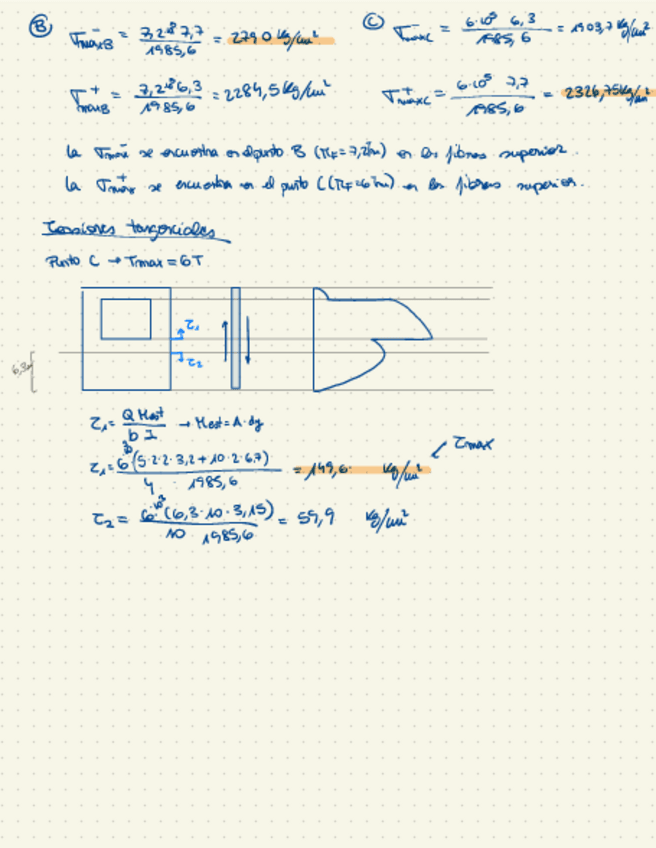 B σmaxB⁻ = 7,2·10⁵ 7,7 / 1985,6 = 2790 kg/cm²
σmaxB⁺ = 7,2·10⁵ 6,3 / 1985,6 = 2284,5 kg/cm²
C σmaxC⁻ = 6·10⁵ 6,3 / 1985,6 = 1903,7 kg/cm²
σmaxC⁺ = 6·10⁵ 7,7 / 1985,6 = 2326,75 kg/cm²
la σmax⁻ se encuentra en el punto B (MF=7,2Tm) en las fibras superior.
la σmax⁺ se encuentra en el punto C (MF=6Tm) en las fibras superior.
Tensiones tangenciales
Punto C → Tmax = 6T
τ1
τ2
6,3
τ1 = Q Mest / b I → Mest = A·dy
τ1 = 6·10³ (5·2·2·3,2 + 10·2·6,7) / 4 · 1985,6 = 149,6 kg/cm²
τmax
τ2 = 6·10³ (6,3·10·3,15) / 10 1985,6 = 59,9 kg/cm²